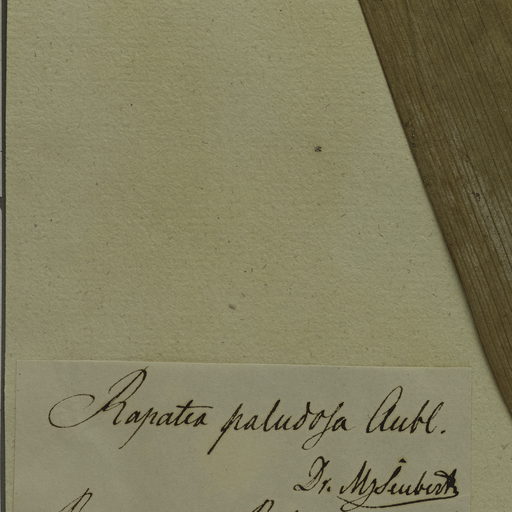 Rapatea paludosa Aubl.
Dr. M. Seubert